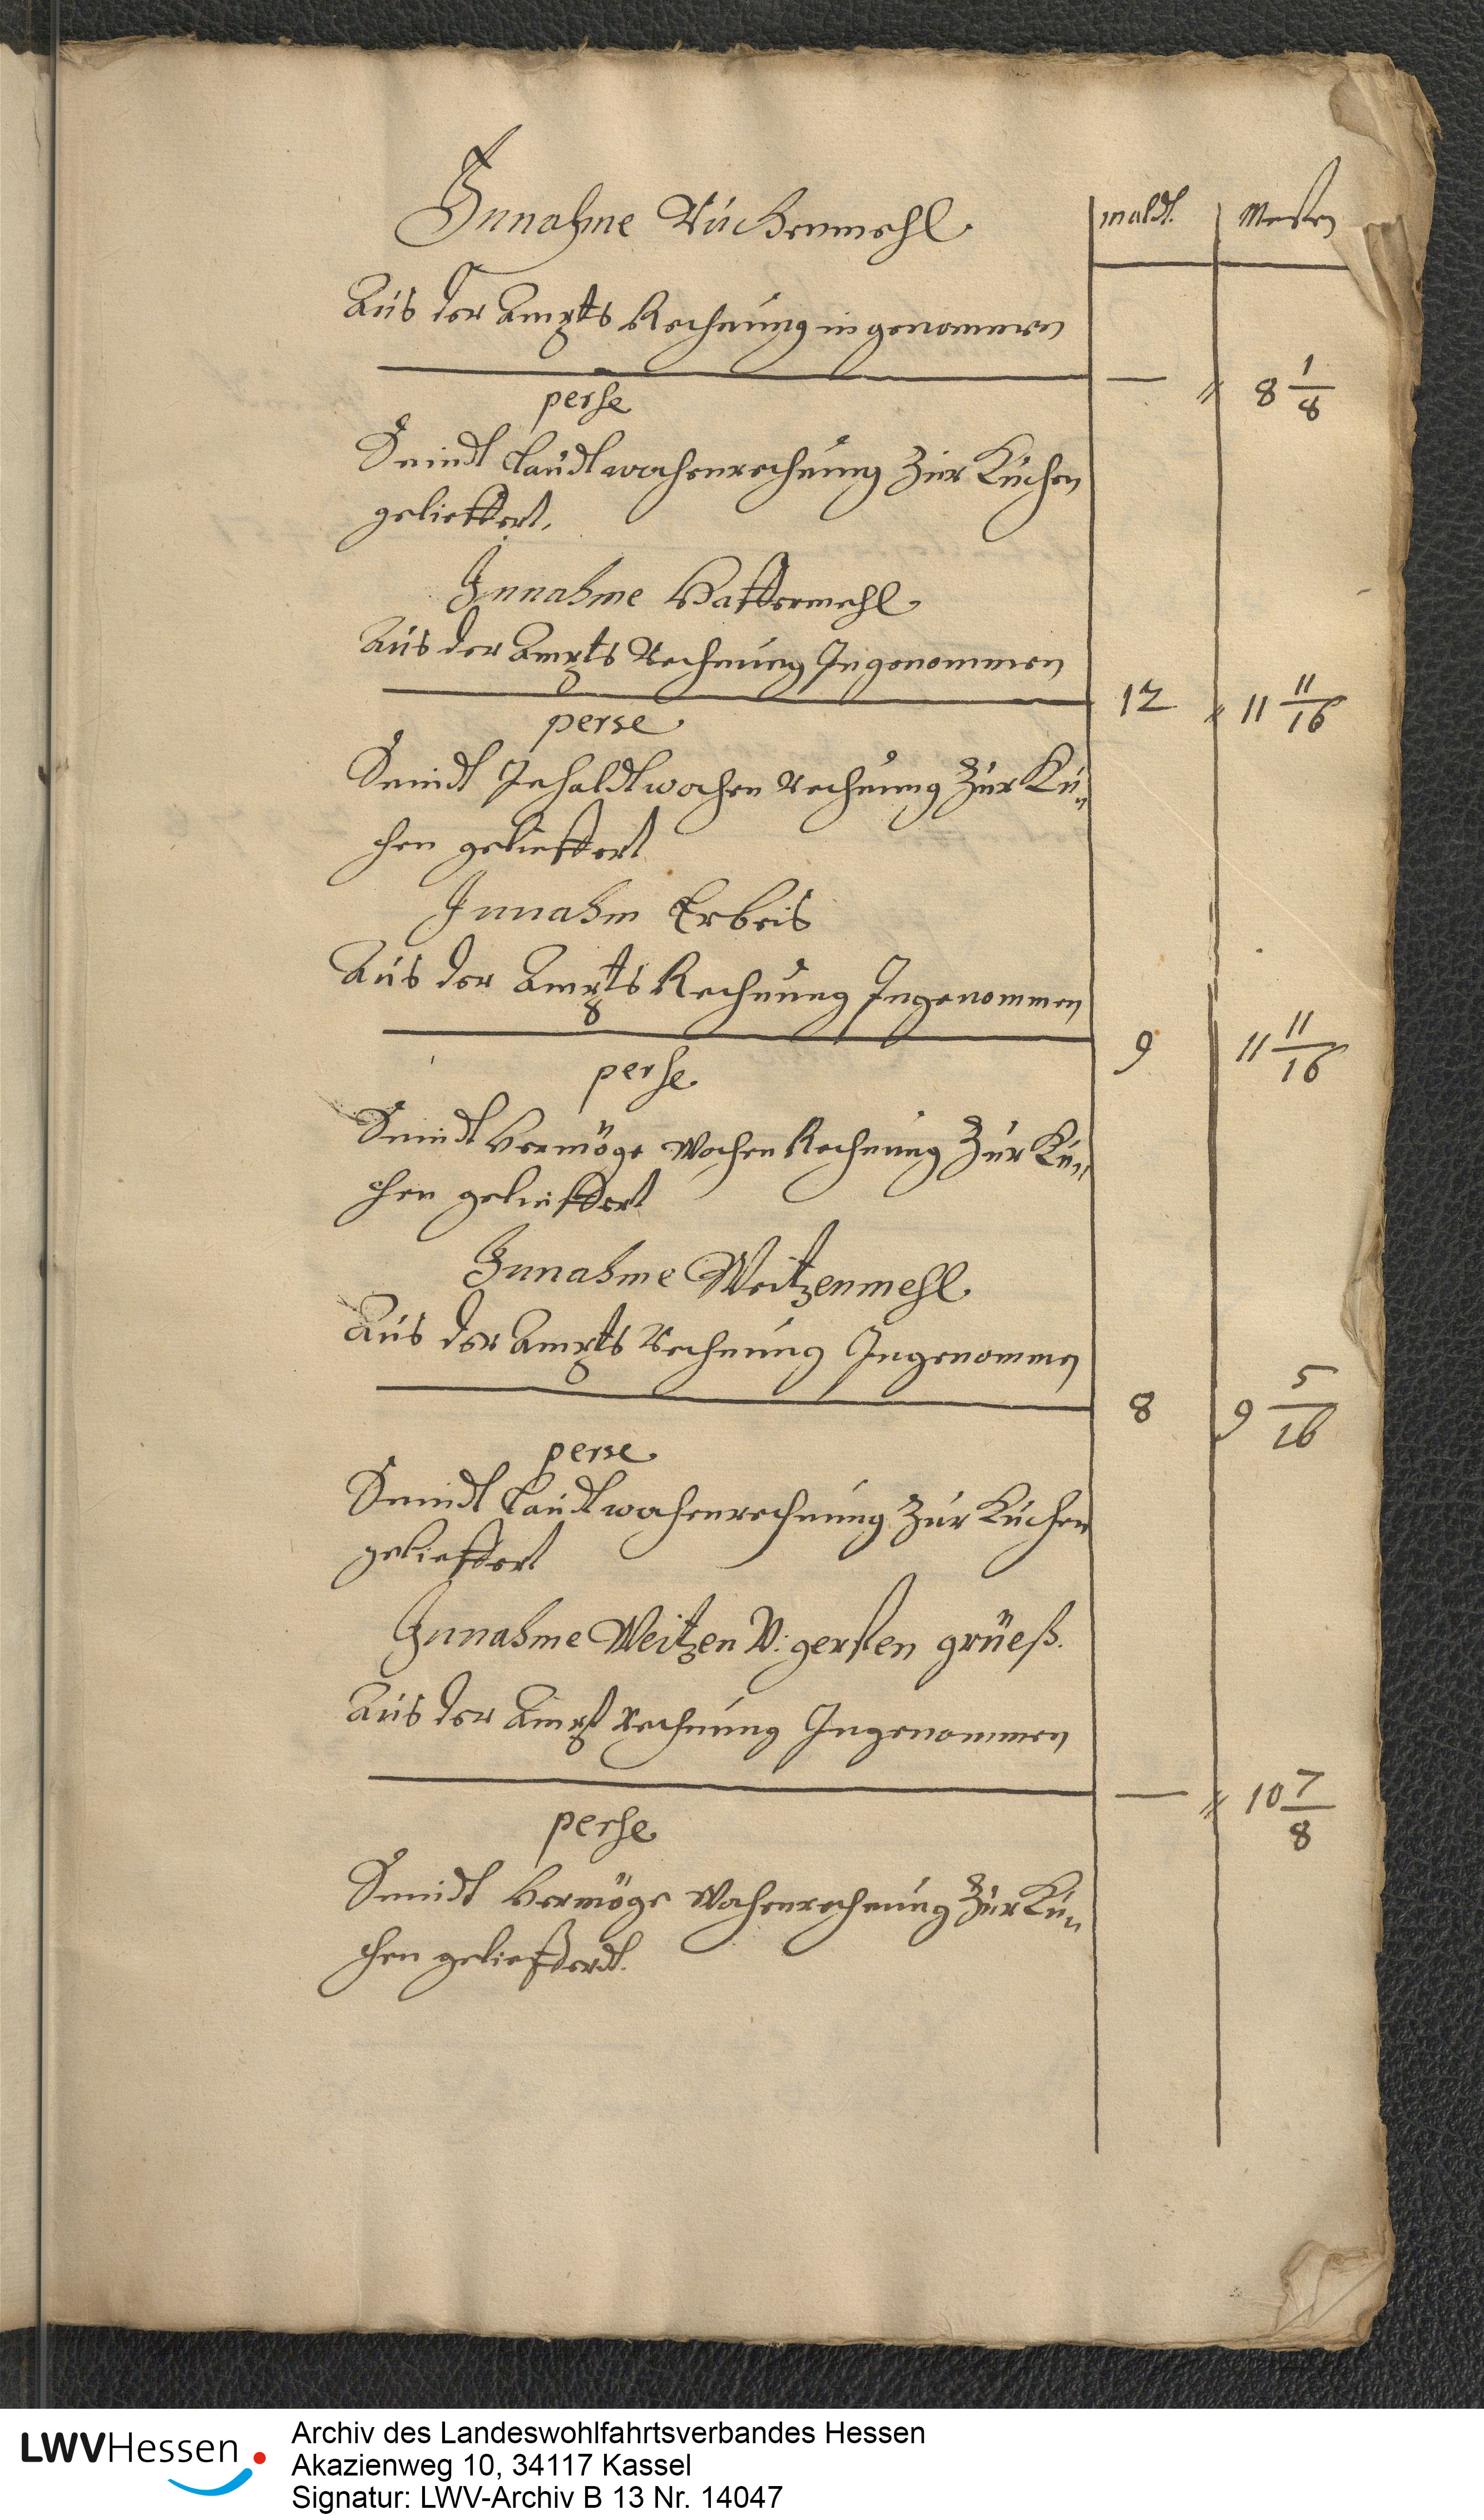 Innahme Ruckenmehl maldt. Mesten
Aus der Ampts Rechnung in genommen
— " 8 1/8
perse
Seindt laudt wochenrechnung Zur Küchen
gelieffert.
Innahme Haffermehl
Aus der Ampts Rechnung Ingenommen
12 " 11 11/16
perse
Seindt Inhaldt wochen Rechnung Zur Kü„
chen gelieffert
Innahm Erbeis
Aus der Ampts Rechnung Ingenommen
9 11 11/16
perse
Seindt Vermöge Wochen Rechnung Zur Kü„
chen gelieffert
Innahme Weitzenmehl
Aus der Ampts Rechnung Ingenommen
8 9 5/16
perse
Seindt laudt wochenrechnung Zur Küchen
gelieffert
Innahme Weitzen V: gersten grüeß.
Aus der Ampt Rechnung Ingenommen
— " 10 7/8
perse
Seindt Vermöge Wochenrechnung Zur Kü„
chen geliefferdt.
LWVHessen
Archiv des Landeswohlfahrtsverbandes Hessen
Akazienweg 10, 34117 Kassel
Signatur: LWV-Archiv B 13 Nr. 14047